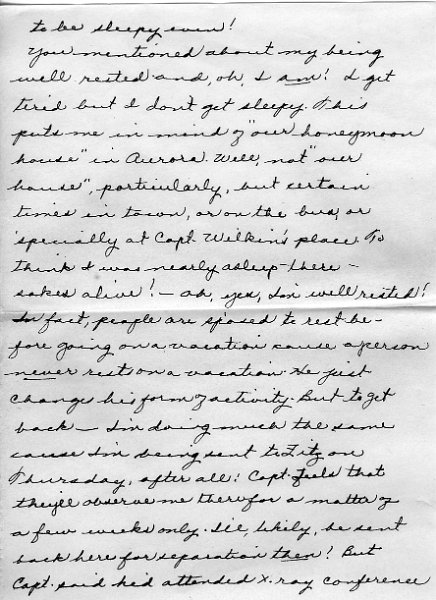 to be sleepy even!
You mentioned about my being
well rested and, oh, I am! I get
tired but I don't get sleepy. This
puts me in mind of "our honeymoon
house" in Aurora. Well, not "our
house", particularly, but certain
times in town, or on the bus, or
'specially at Capt. Wilkin's place. To
think I was nearly asleep there –
sakes alive! – oh, yes, I'm well rested!
In fact, people are s'posed to rest be-
fore going on a vacation cause a person
never rests on a vacation. He just
changes his form of activity. But to get
back – I'm doing much the same
cause I'm being sent to Fitz on
Thursday, after all! Capt. feels that
they'll observe me there for a matter of
a few weeks only. I'll, likely, be sent
back here for separation then! But
Capt. said he'd attended X-ray conference